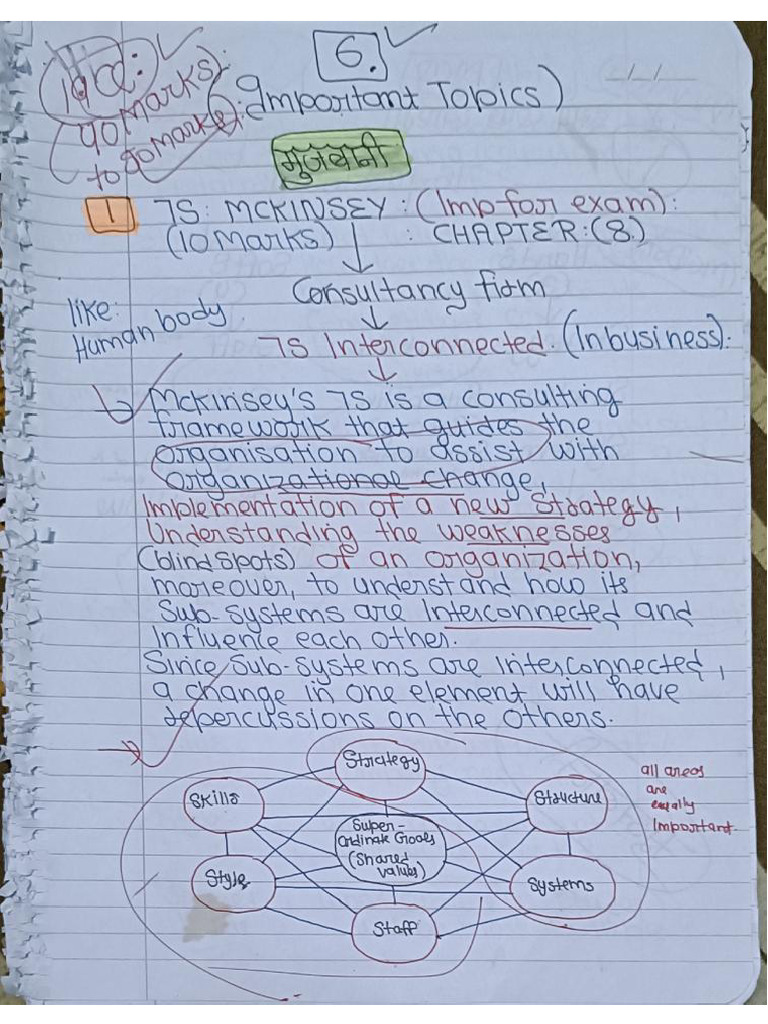 6.
40 Marks
to 90 Marks):
(Important Topics)
मुजबानी
1 7S: MCKINSEY: (Imp for exam):
(10 Marks) : CHAPTER: (8.)
Consultancy firm
like:
Human body
7S Interconnected. (In business):
Mckinsey's 7S is a consulting
framework that guides the
organisation to assist with
organizational change,
Implementation of a new Strategy,
Understanding the weaknesses
(blind spots) of an organization,
moreover, to understand how its
Sub-systems are Interconnected and
Influence each other.
Since Sub-systems are interconnected,
a change in one element will have
repercussions on the others.
Strategy
Skills
Structure
Super-
Ordinate Goals
(Shared
values)
Style
Systems
Staff
all areas
are
equally
Important.